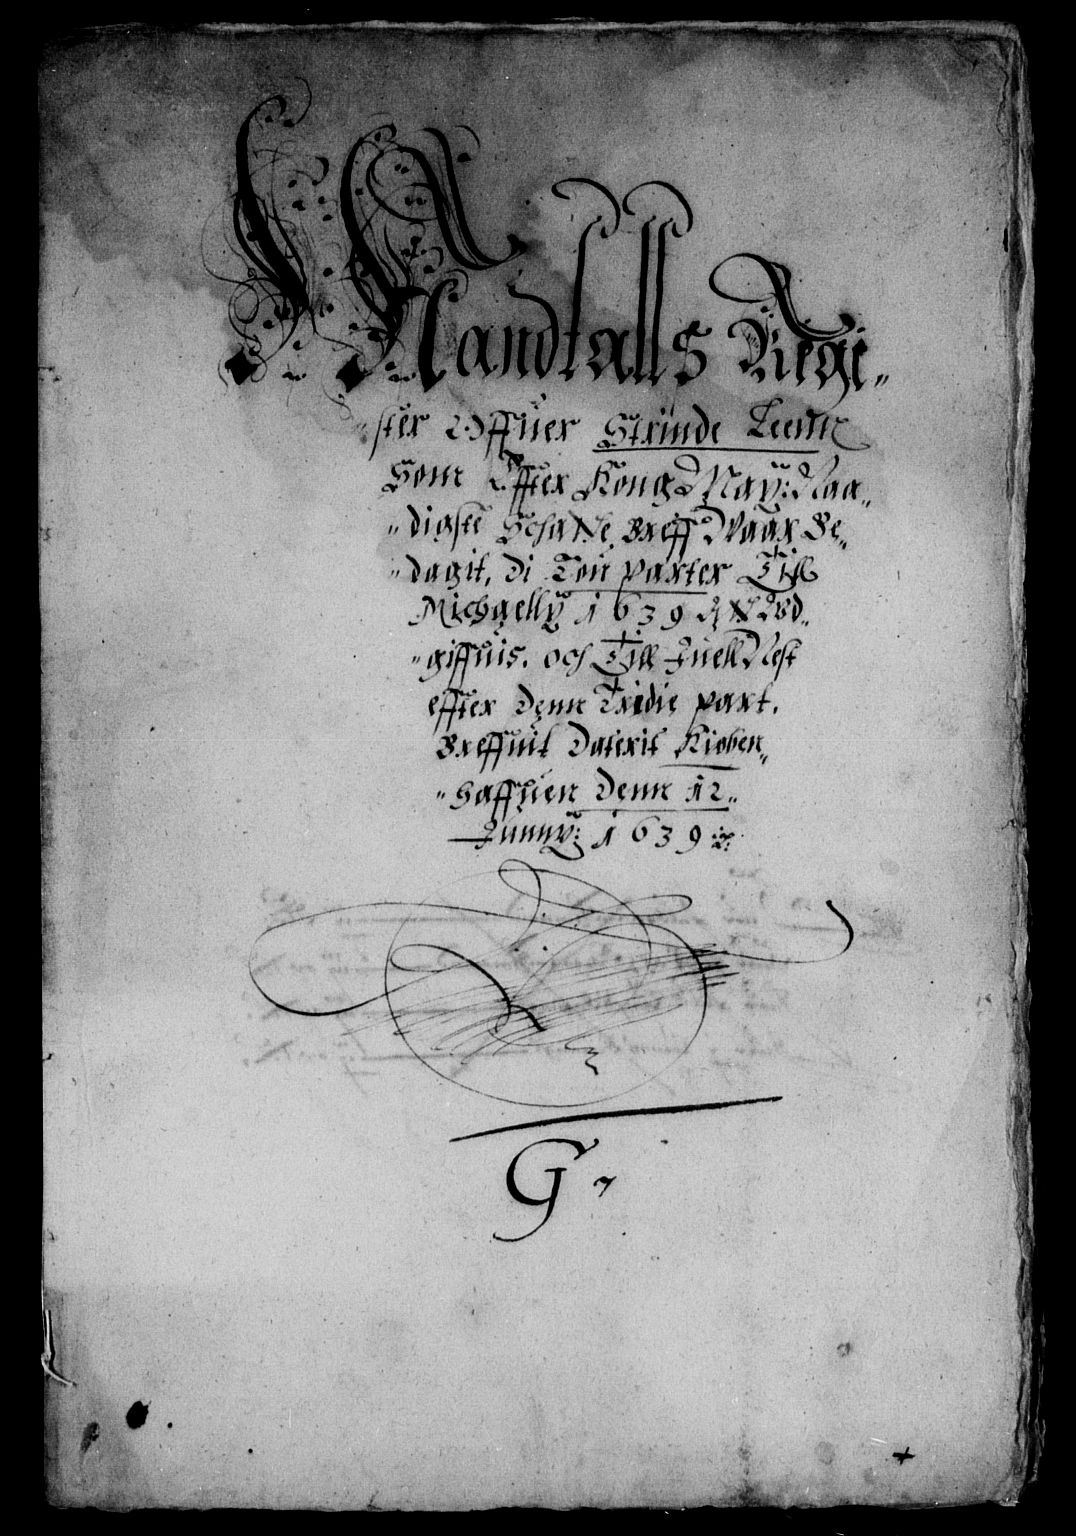 Mandtalls Regi-
ster Offuer Strinde Leenn
Som Effter Kong May: Naa-
digste Schatte Breff Waar Be-
dagit, di Tou parter Till
Michaelly 1639 At Vd-
giffuis. och Till Juell Nest
effter Denn Tridie part.
Breffuit Daterit Kioben-
haffuen Denn 12
Junny: 1639
G